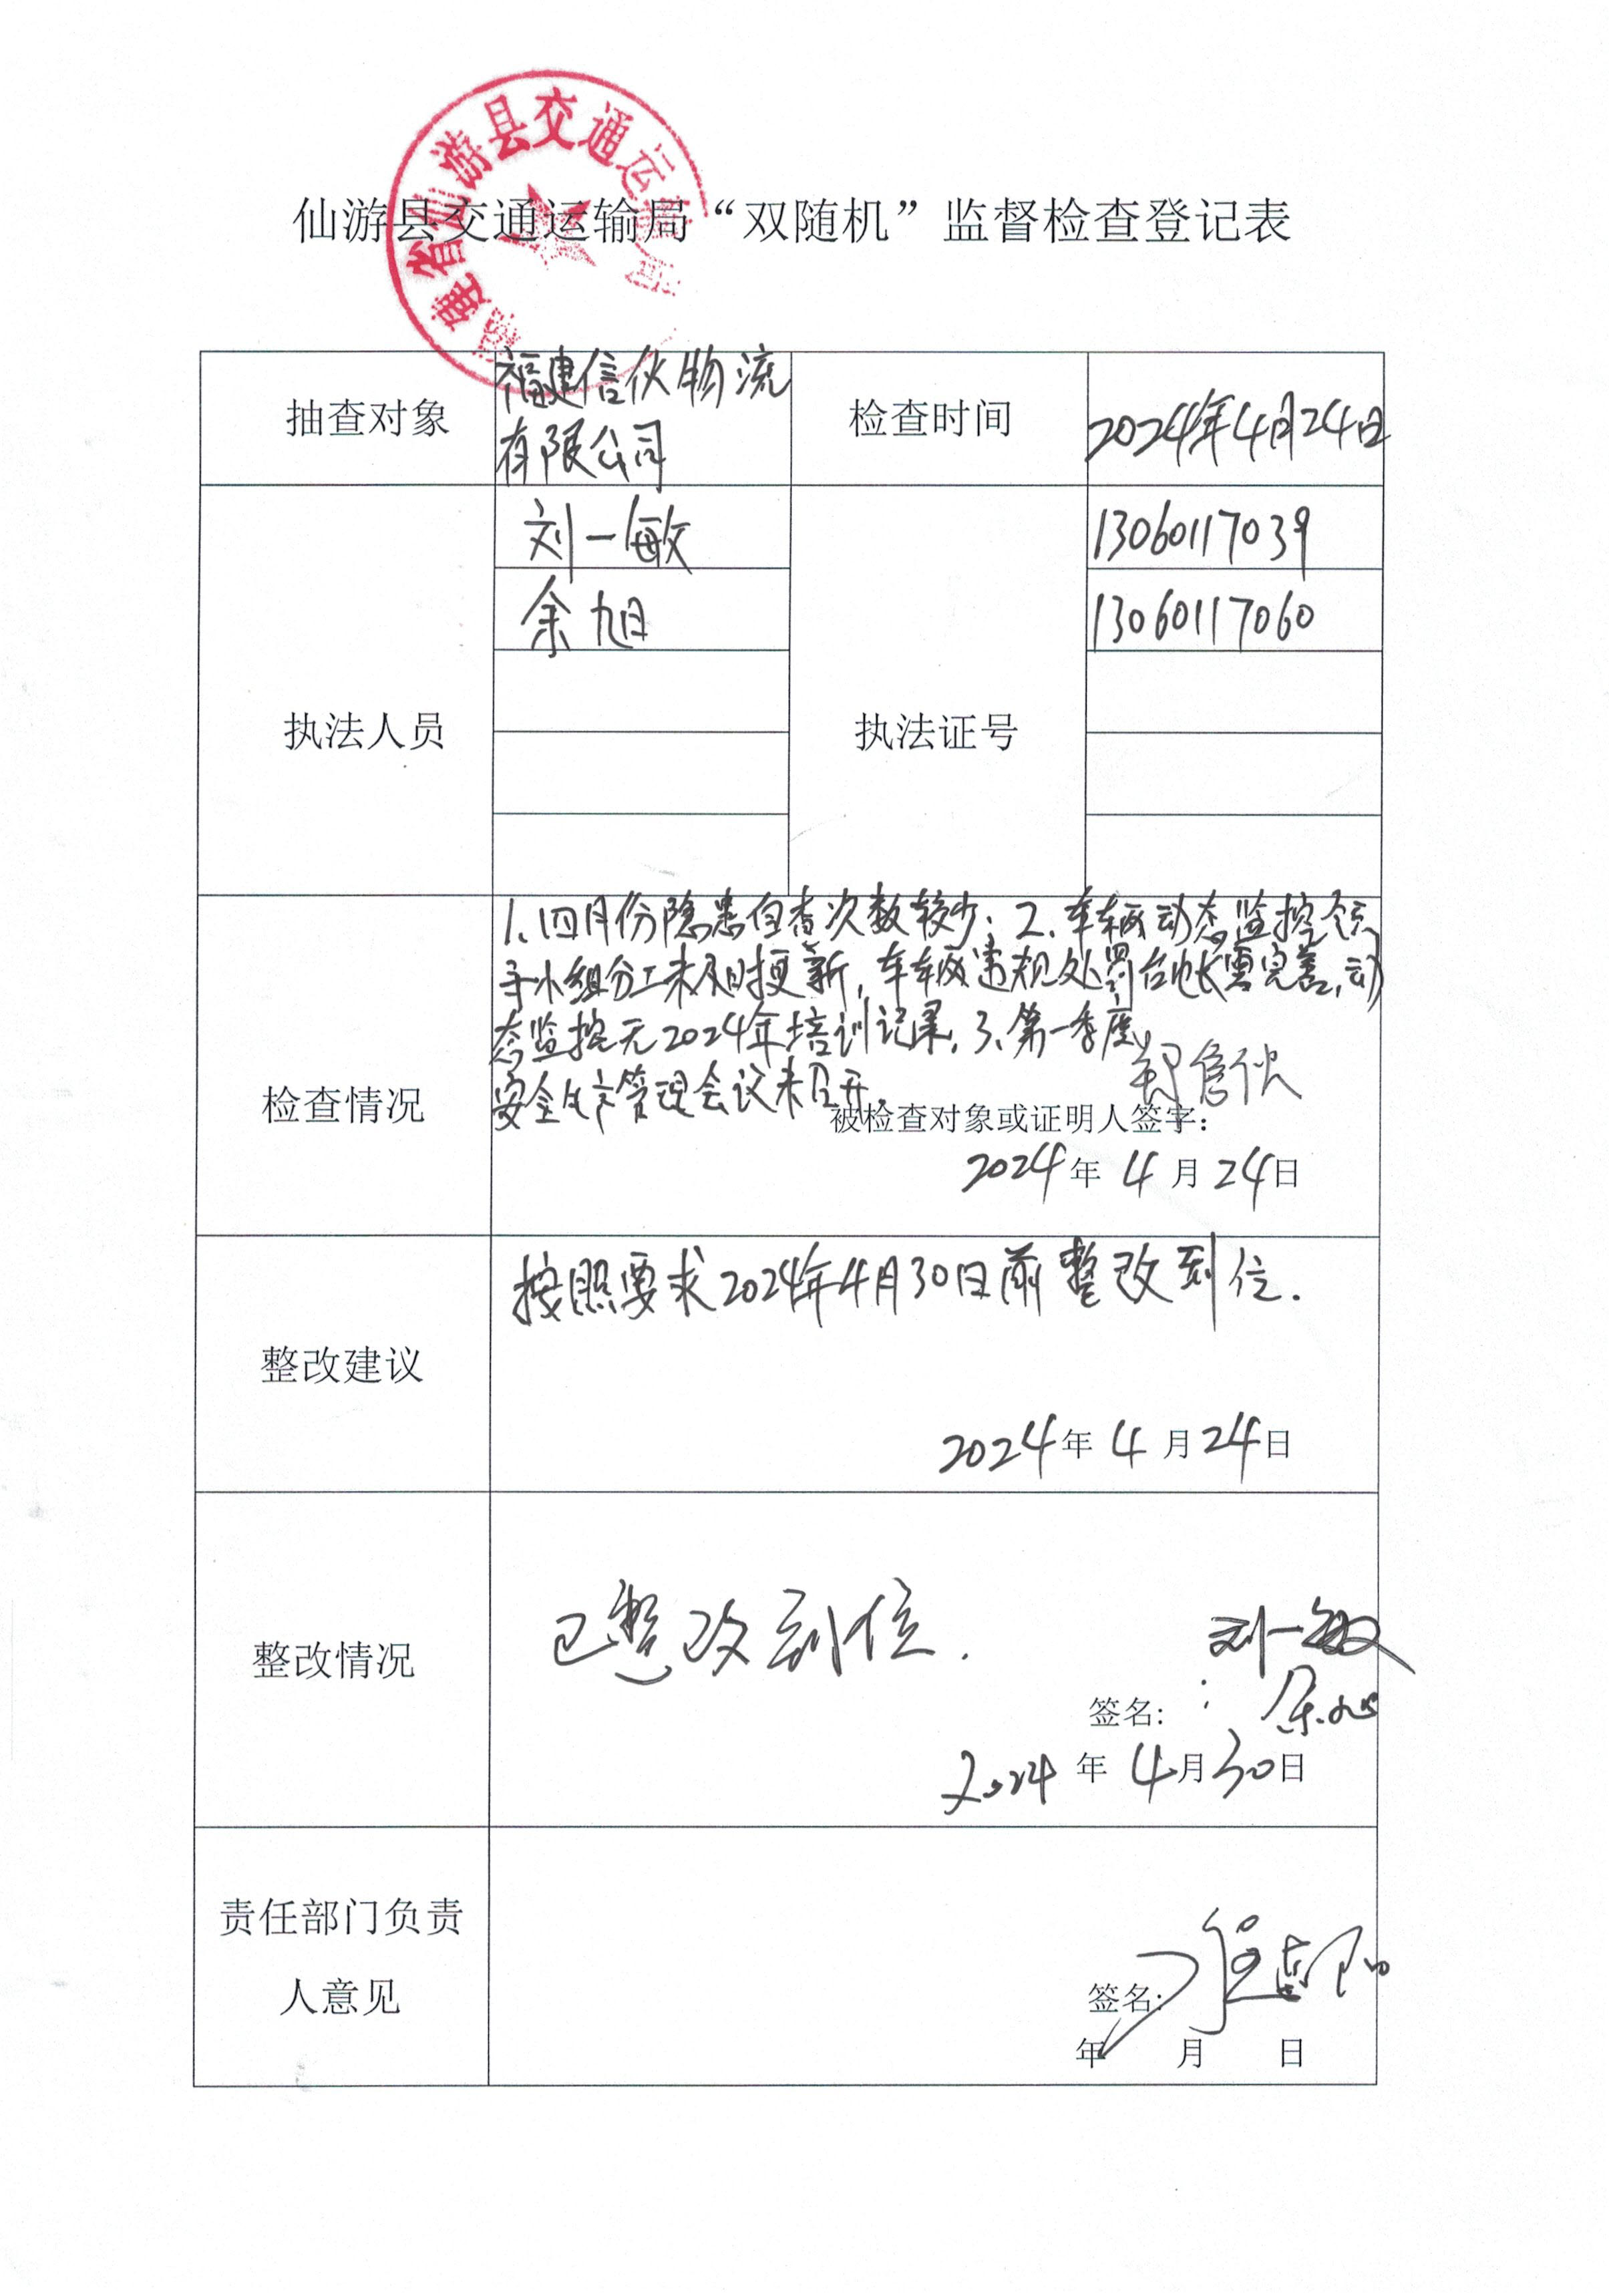 福建省仙游县交通运输局
仙游县交通运输局“双随机”监督检查登记表
抽查对象
福建信伙物流
有限公司
检查时间
2024年4月24日
执法人员
刘一敏
余旭
执法证号
13060117039
13060117060
检查情况
1、四月份隐患自查次数较少；2、车辆动态监控领
导小组分工未及时更新，车辆违规处罚台帐需完善，动
态监控无2024年培训记录，3、第一季度
安全生产管理会议未召开。
被检查对象或证明人签字：
2024年4月24日
整改建议
按照要求2024年4月30日前整改到位.
2024年4月24日
整改情况
已整改到位.
刘一敏
签名: 余旭
2024年4月30日
责任部门负责
人意见
签名:
年 月 日